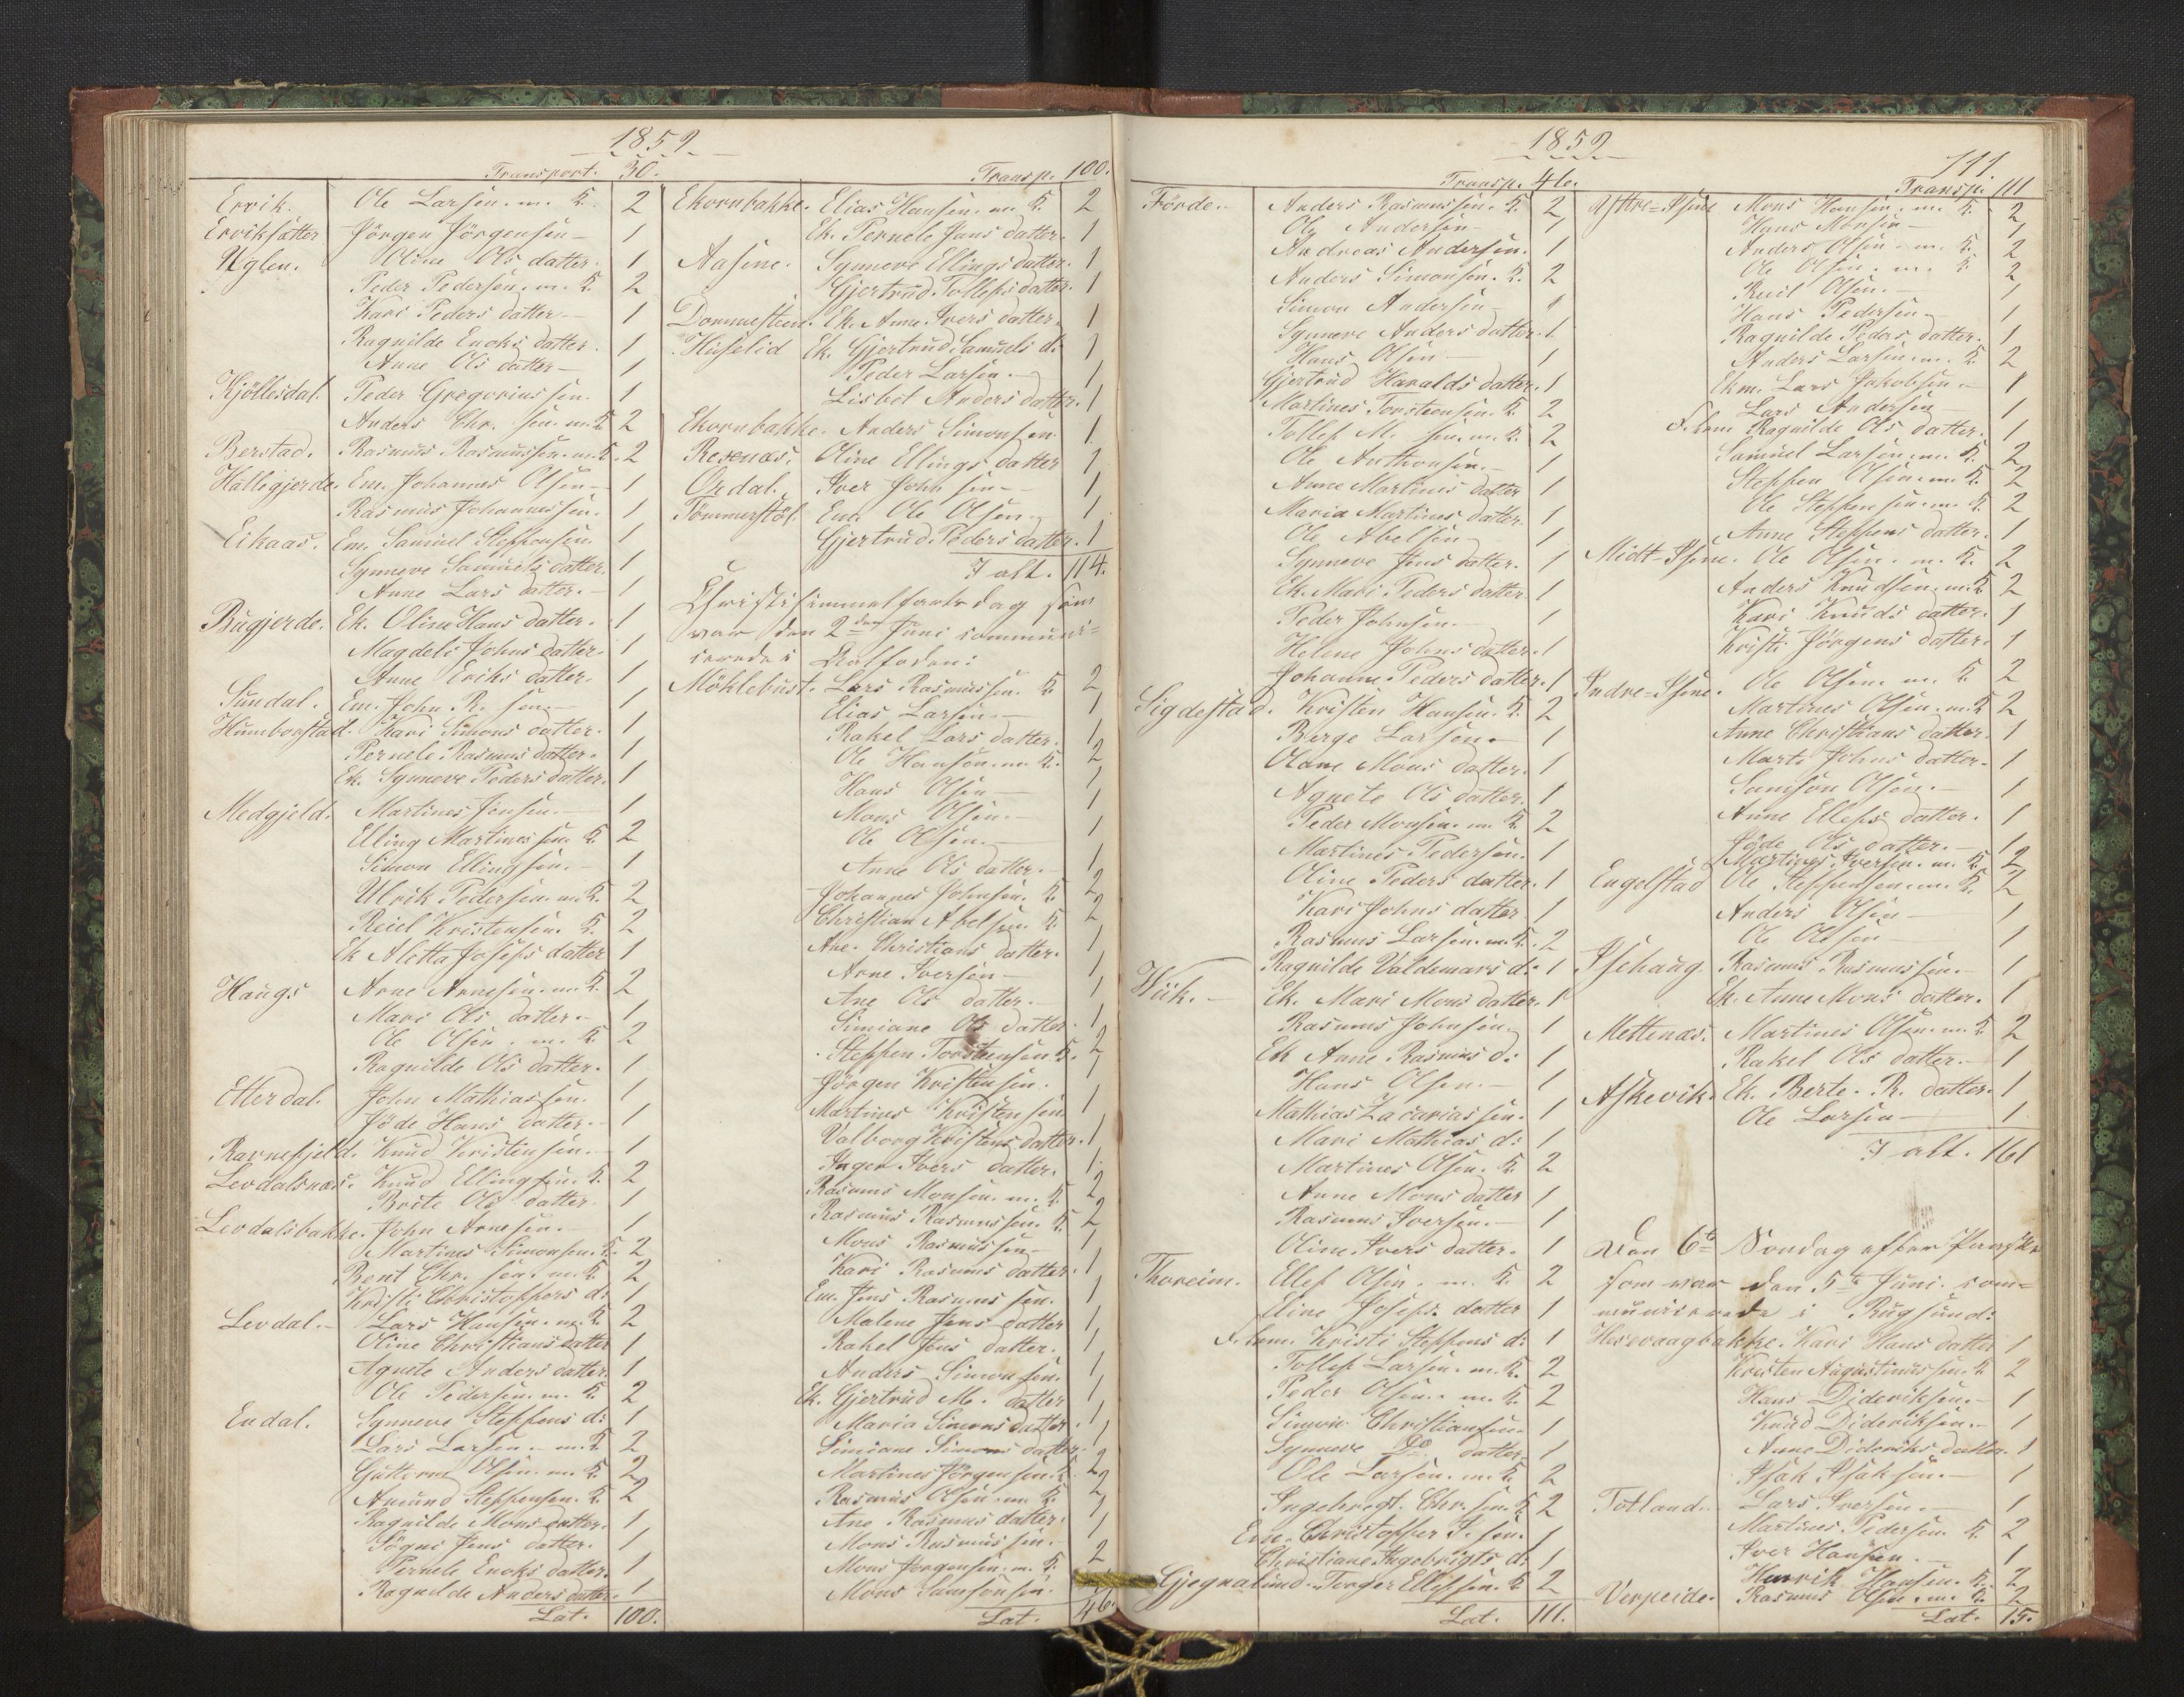 1859
Transport. 30.
Ervik. Ole Larsen. m. K. 2
Erviksätter Jörgen Jörgensen 1
Uglen. Oline Ols datter. 1
Peder Pedersen. m. K. 2
Kari Peders datter 1
Ragnilde Enoks datter. 1
Anne Ols datter 1
Kjöllesdal. Peder Gregoriussen. 1
Anders Chr. sen. m. K 2
Berstad. Rasmus Rasmussen. m. K. 2
Hälligjerde. Em. Johannes Olsen 1
Rasmus Johannessen. 1
Eikaas. Em. Samuel Steffensen. 1
Synneve Samuels datter. 1
Anne Lars datter. 1
Bugjerde. Ek. Oline Hans datter. 1
Magdeli Johns datter. 1
Anne Eriks datter. 1
Sundal. Em. John R. sen. 1
Humborstad. Kari Simons datter. 1
Pernele Rasmus datter. 1
Ek. Synneve Peders datter. 1
Medgjeld. Martines Jensen. 1
Elling Martinessen. K. 2
Simon Ellingsen. 1
Ulrik Pedersen. m. K. 2
Reiel Kristensen. K. 2
Ek Aletta Josefs datter 1
Haugs Arne Arnesen. m. K. 2
Mari Ols datter. 1
Ole Olsen. m. K 2
Ragnilde Ols datter. 1
Etterdal. John Mathiassen. 1
Jöde Hans datter. 1
Ravnefjeld. Knud Kristensen. 1
Levdalsnæs. Knud Ellingsen. K. 2
Brite Ols datter. 1
Levdalsbakke. John Arnesen. 1
Martines Simonsen. K. 2
Bent Chr. sen. m. K. 2
Kristi Christoffers d: 1
Levdal. Lars Hansen. m. K 2
Oline Christians datter 1
Agnete Anders datter. 1
Ole Pedersen. m. K. 2
Endal. Synneve Steffens d: 1
Lars Larsen. m. K. 2
Guttorm Olsen. m. K. 2
Amund Steffensen. K. 2
Ragnilde Mons datter. 1
Sögni Jens datter. 1
Pernele Enoks datter. 1
Ragnilde Anders datter. 1
Lat. 100.
Transp. 100.
Ekornbakke. Elias Hansen. m. K. 2
Ek. Pernele Jans datter. 1
Aasene. Synneve Ellings datter. 1
Gjertrud Tollefs datter. 1
Dommesteen. Ek. Anne Ivers datter. 1
Huselid Ek. Gjertrud Samuels d: 1
Peder Larsen. 1
Lisbet Anders datter. 1
Ekornbakke. Anders Simonsen. 1
Revenæs. Oline Ellings datter 1
Ordal. Iver Johnsen 1
Tömmerstöl. Em. Ole Olsen. 1
Gjertrud Peders datter. 1
I alt. 114.
Christi himmelfartsdag som
var den 2den Juni communi=
cerede i Dalsöen:
Möklebust. Lars Rasmussen. K. 2
Elias Larsen. 1
Rakel Lars datter. 1
Ole Hansen. m. K. 2
Hans Olsen 1
Mons Olsen. 1
Ole Olsen. 1
Anne Ols datter. 1
Johannes Johnsen. K. 2
Christian Abelsen K. 2
Ane. Christians datter. 1
Arne Iversen 1
Ane Ols datter. 1
Simiane Ols datter. 1
Steffen Torstensen. K. 2
Jörgen Kristensen. 1
Martines Kristensen. 1
Valborg Kristens datter. 1
Inger Ivers datter. 1
Rasmus Monsen. m. K. 2
Rasmus Rasmussen. K. 2
Mons Rasmussen 1
Kari Rasmus datter. 1
Em. Jens Rasmussen. 1
Malene Jens datter 1
Rakel Jens datter. 1
Anders Simonsen. 1
Ek. Gjertrud M. datter 1
Maria Simons datter. 1
Simiane Simons datter. 1
Martines Jörgensen. K. 2
Rasmus Olsen m. K. 2
Ane Rasmus datter. 1
Mons Rasmussen. 1
Mons Jörgensen. m. K. 2
Mons Samsonsen.
Lat. 46.
1859
111.
Transp. 46.
Förde. Anders Rasmussen. K. 2
Ole Andersen 1
Andreas Andersen. 1
Anders Simonsen. K. 2
Simon Andersen 1
Synneve Anders datter. 1
Hans Olsen 1
Gjertrud Haralds datter. 1
Martines Torstensen. K. 2
Tollef M. sen. m. K. 2
Ole Anthonsen. 1
Anne Martines datter 1
Maria Martines datter. 1
Ole Abelsen 1
Synneve Jens datter. 1
Ek. Mari Peders datter. 1
Peder Johnsen. 1
Helene Johns datter. 1
Johanne Peders datter. 1
Sigdestad. Kristen Hansen. K. 2
Børge Larsen. 1
Oline Mons datter. 1
Agnete Ols datter. 1
Peder Monsen. m. K. 2
Martines Pedersen. 1
Oline Peders datter. 1
Kari Johns datter 1
Rasmus Larsen. m. K. 2
Ragnilde Valdemars d: 1
Wiik. Ek. Mari Mons datter. 1
Rasmus Johnsen. 1
Ek Anne Rasmus d: 1
Hans Olsen. 1
Mathias Zacariassen. 1
Mari Mathias d: 1
Martines Olsen. K. 2
Anne Mons datter 1
Rasmus Iversen. 1
Oline Ivers datter. 1
Thoreim. Ellef Olsen. m. K. 2
Eline Josefs. datter 1
Kristi Steffens d: 1
Tollef Larsen. m. K. 2
Peder Olsen. m. K. 2
Simon Christiansen 1
Synneve Do. datter 1
Ole Larsen. m. K. 2
Ingebrigt. Chr. sen. K 2
Em. Christoffer I. sen. 1
Christiane Ingebrigts d: 1
Gjegnalund. Torger Ellefsen. K 2
Lat. 111.
Transp. 111
Ysttre-Isene Mons Hansen. m. K. 2
Hans Monsen 1
Anders Olsen. m. K. 2
Ole Olsen. m. K 2
Reiel Olsen. 1
Hans Pedersen 1
Ragnilde Peders datter. 1
Anders Larsen m. K. 2
Ekm. Lars Jakobsen 1
Lars Andersen 1
Ragnilde Ols datter. 1
Samuel Larsen. m. K. 2
Steffen Olsen. m. K. 2
Ole Steffensen. m. K. 2
Anne Steffens datter. 1
Midt-Isene. Ole Olsen. m. K. 2
Anders Knudsen. m. K 2
Kari Knuds datter. 1
Kristi Jörgens datter. 1
Indre-Isene. Ole Olsen. m. K 2
Martines Olsen. m. K 2
Anne Christians datter. 1
Marte Johns datter. 1
Samson Olsen. 1
Anne Ellefs datter. 1
Jöde Ols datter. 1
Martines Iversen. m. K. 2
Engelstad Ole Steffensen. m. K. 2
Anders Olsen 1
Ole Olsen 1
Isehaug. Rasmus Rasmussen. 1
Ek. Anne Mons datter. 1
Mettenæs. Martines Olsen. m. K 2
Rakel Ols datter. 1
Askevik. Ek. Berte. R. datter. 1
Ole Larsen 1
I alt. 161
Den 6te Søndag efter Paaske
som var den 5te Juni. com=
municerede i Rugsund:
Hessevaagbakke. Kari Hans datter 1
Kristen Augustinussen. K 2
Hans Dideriksen. 1
Knud Dideriksen. 1
Anne Dideriks datter. 1
Isak Isaksen. 1
Totland. Lars Iversen. 1
Martines Pedersen. K. 2
Iver Hansen. 1
Henrik Hansen. K. 2
Verpeide. Rasmus Olsen. m. K. 2
Lat. 15.